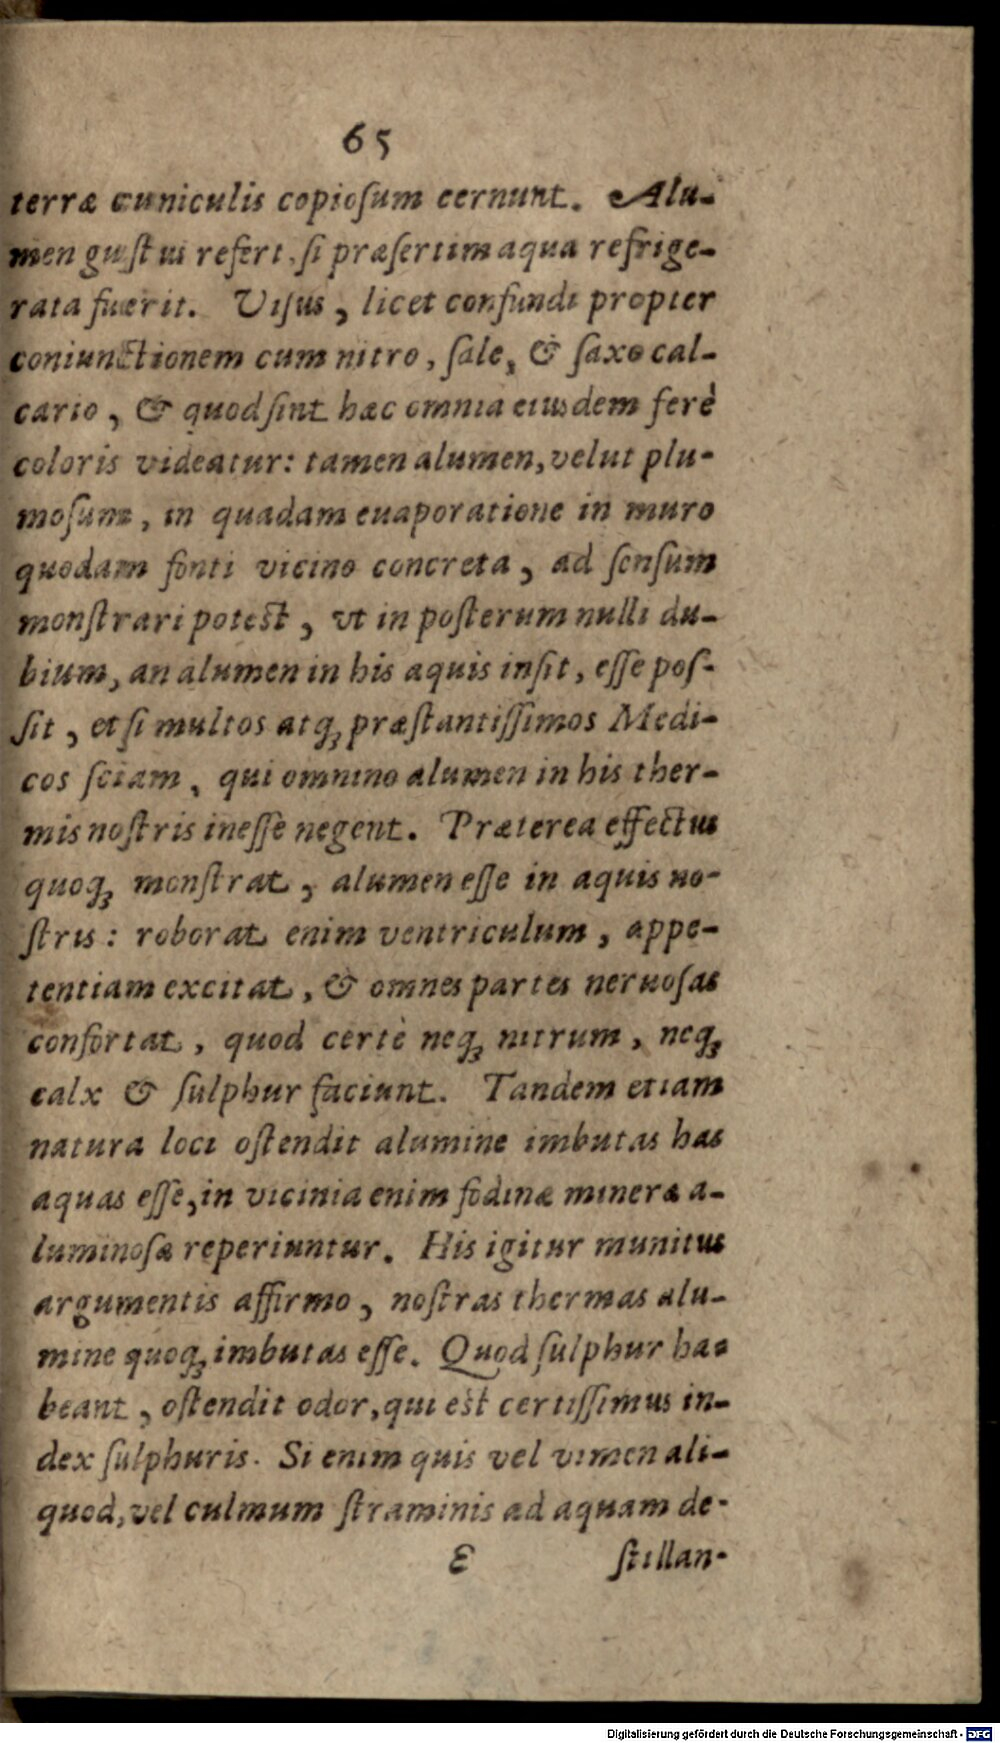 65
terræ cuniculis copiosum cernunt. Alu-
men gustui refert, si præsertim aqua refrige-
rata fuerit. Visus, licet confundi propter
coniunctionem cum nitro, sale, & saxo cal-
cario, & quod sint hæc omnia eiusdem ferè
coloris videatur: tamen alumen, velut plu-
mosum, in quadam euaporatione in muro
quodam fonti vicino concreta, ad sensum
monstrari potest, vt in posterum nulli du-
bium, an alumen in his aquis insit, esse pos-
sit, etsi multos atqꝫ præstantissimos Medi-
cos sciam, qui omnino alumen in his ther-
mis nostris inesse negent. Præterea effectus
quoqꝫ monstrat, alumen esse in aquis no-
stris: roborat enim ventriculum, appe-
tentiam excitat, & omnes partes neruosas
confortat, quod certè neqꝫ nitrum, neqꝫ
calx & sulphur faciunt. Tandem etiam
natura loci ostendit alumine imbutas has
aquas esse, in vicinia enim fodinæ mineræ a-
luminosæ reperiuntur. His igitur munitus
argumentis affirmo, nostras thermas alu-
mine quoqꝫ imbutas esse. Quod sulphur ha-
beant, ostendit odor, qui est certissimus in-
dex sulphuris. Si enim quis vel vimen ali-
quod, vel culmum straminis ad aquam de-
E stillan-
Digitalisierung gefördert durch die Deutsche Forschungsgemeinschaft - DFG